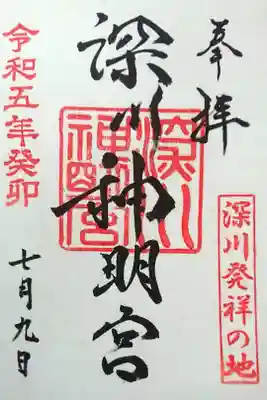 奉拝
深川発祥の地
深川神明宮
深川
神明宮
令和五年癸卯
七月九日